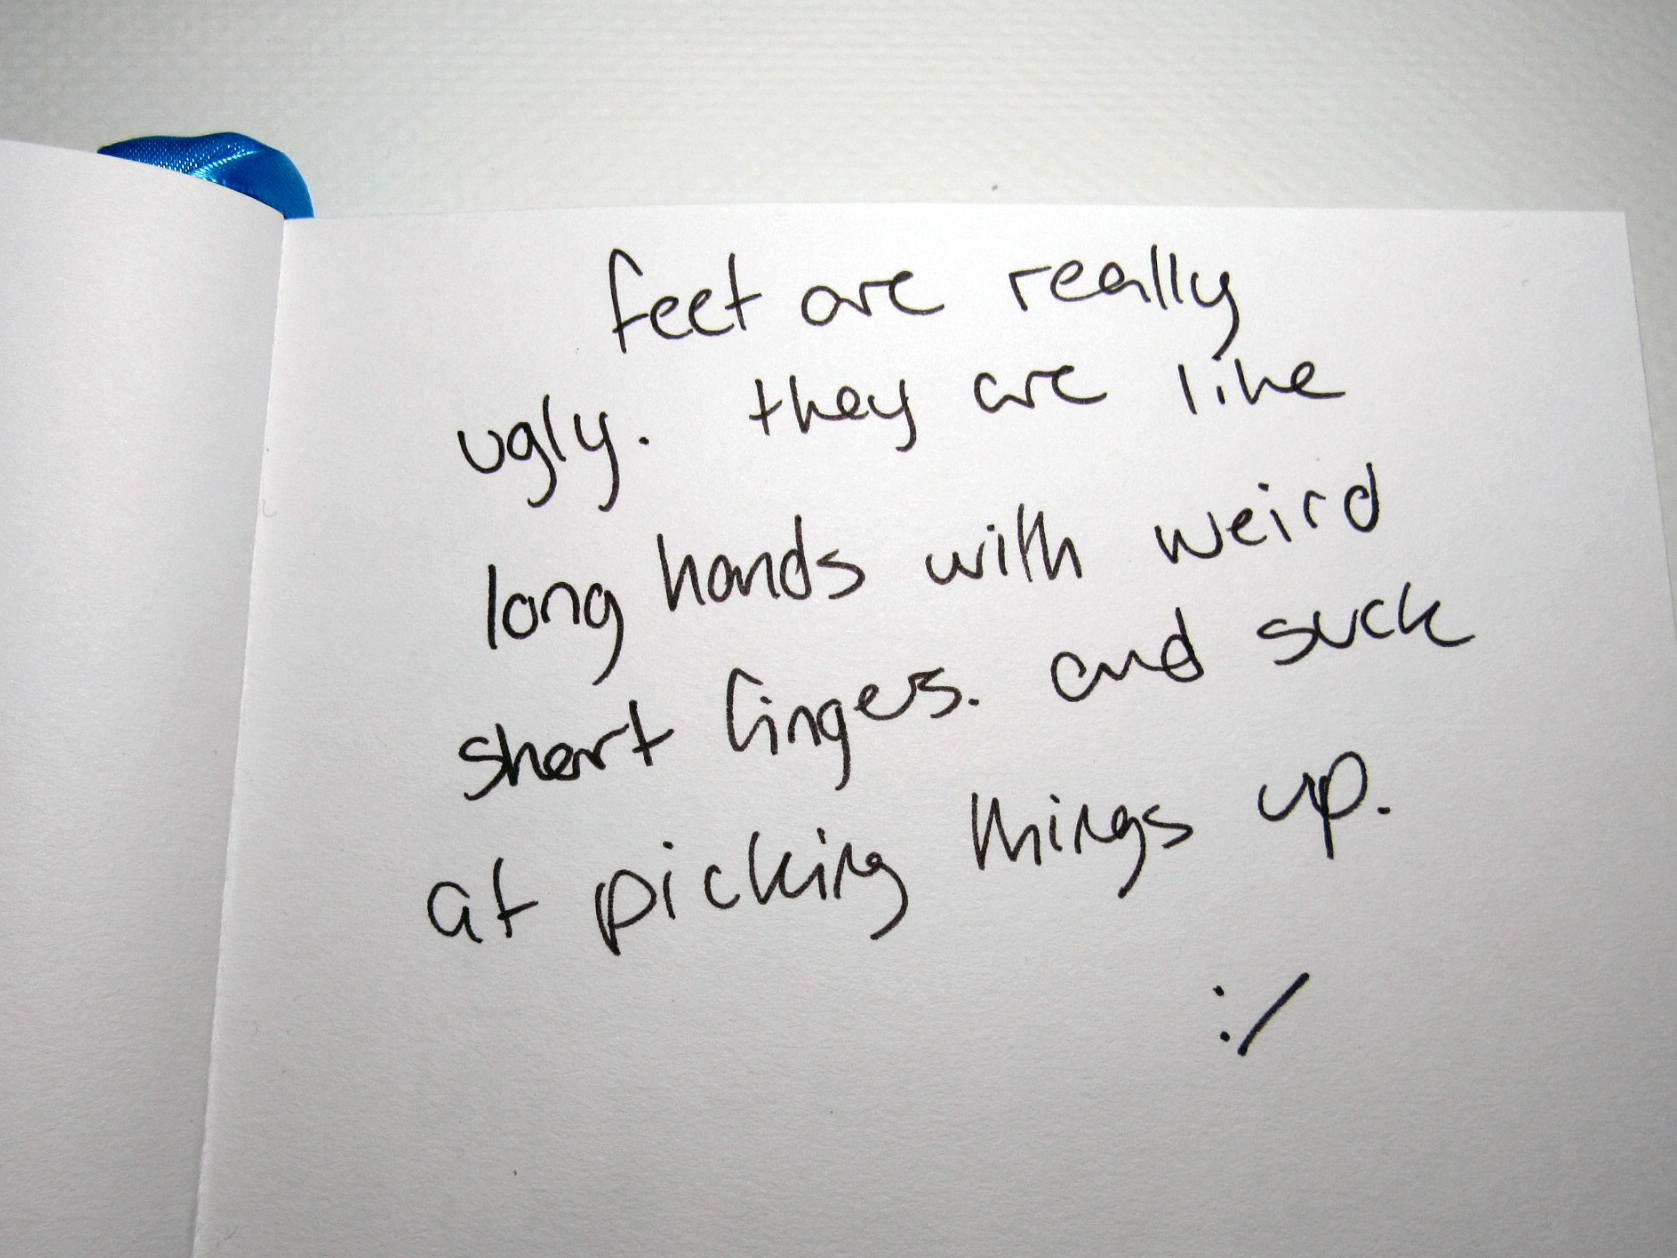 feet are really
ugly. they are like
long hands with weird
short fingers. and suck
at picking things up.
:/